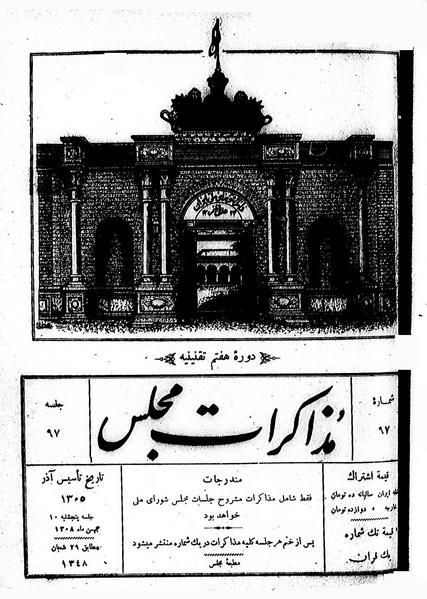 دورهٔ هفتم تقنینیه
شمارهٔ
۹۷
مذاکرات مجلس
جلسه
۹۷
قیمة اشتراك
ایران سالیانه ده تومان
خارجه » دوازده تومان
قیمة تك شماره
یك قران
مندرجات
فقط شامل مذاکرات مشروح جلسات مجلس شورای ملی
خواهد بود
پس از ختم هر جلسه کلیه مذاکرات در یك شماره منتشر میشود
مطبعهٔ مجلس
تاریخ تأسیس آذر
۱۳۰۵
جلسه پنجشنبه ۱۰
بهمن ماه ۱۳۰۸
مطابق ۲۹ شعبان
۱۳۴۸